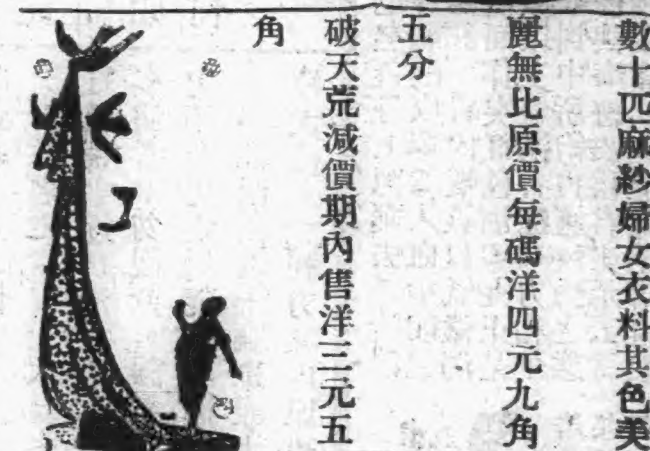 數十匹麻紗婦女衣料其色美
麗無比原價每碼洋四元九角
五分
破天荒減價期內售洋三元五
角